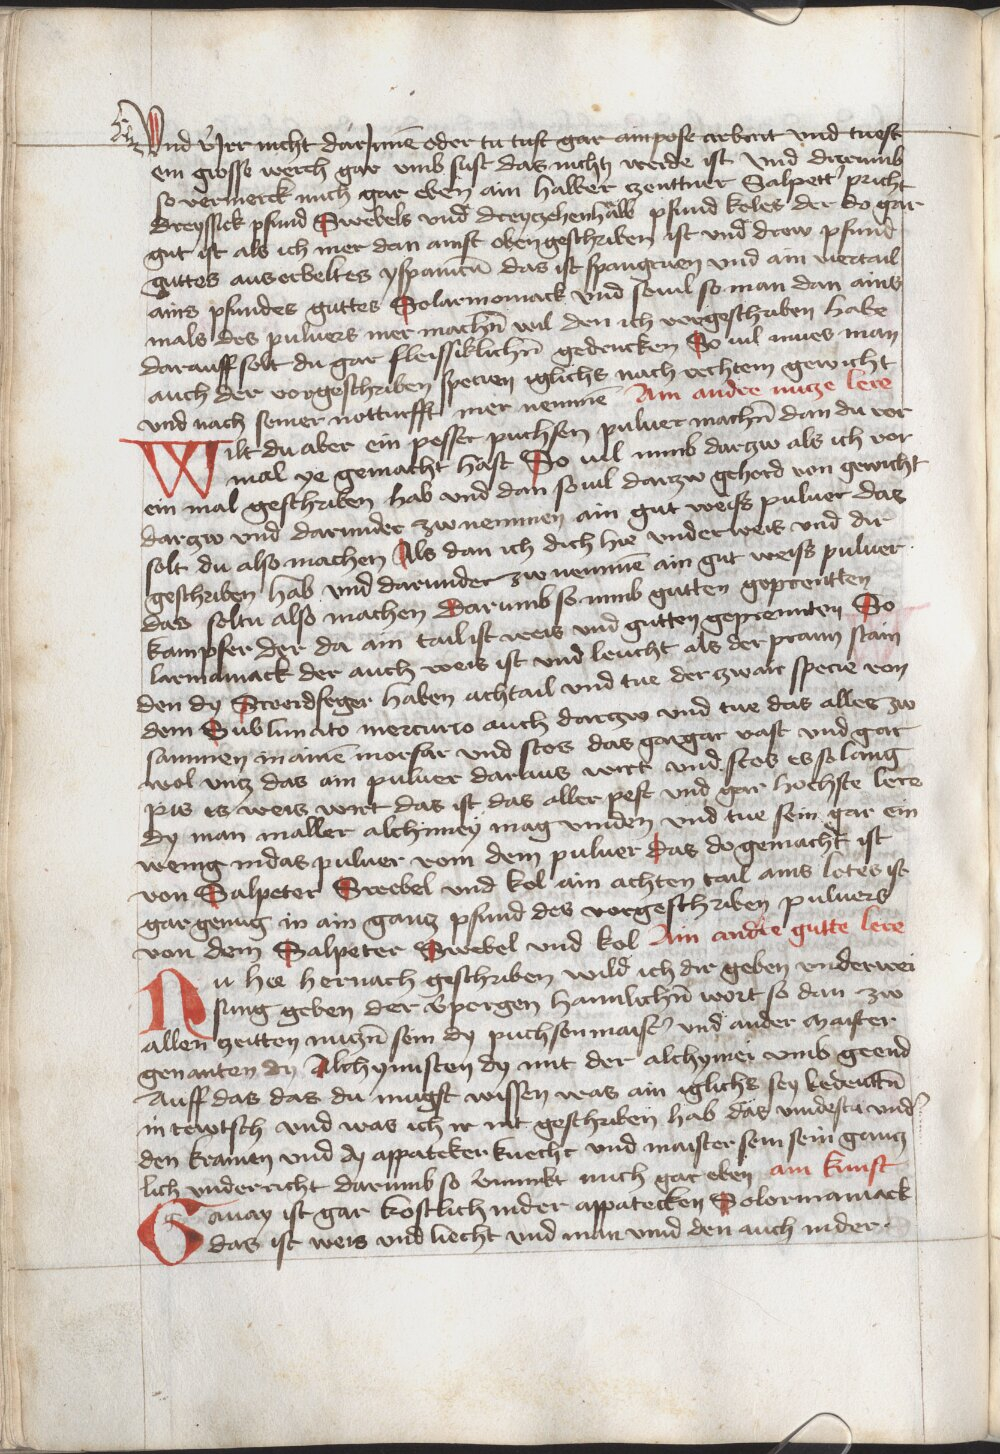 Und v̈Irr nicht darJnnē oder tu tust gar ain pose arbait vnd tuest
ein grosse werch gar vmb sust das nichtz werde ist vnd darumb
so vermerck mich gar eben ain halber zenttner Salpett' pricht
dreyssick pfund Swebels vnd dreyczehenhalb pfund koles der do gar
gut ist als ich mer dan ainst oben geschriben ist vnd drew pfund
guttes auserbeltes yspanicū das ist spangruen vnd ain viertail
ains pfundes guttes Solarmoniack vnd souil so man dan ains
mals des puluers mer machn̄ wil den ich vorgeschriben habe
darauff solt du gar fleissiklichn̄ gedencken So uil mues man
auch der vorgeschriben specien iglichs nach rechtem gewicht
vnd nach seiner notturfft mer nemmen Ain andre nucze lere
Wilt du aber ein pesser puchsen puluer machn̄ dan du vor
mal ye gemacht hast So uil nimb darzw als ich vor
ein mal geschriben hab vnd dan so uil darzw gehord von gewicht
darzw vnd darunder zw nemmen ain gut weiss puluer das
solt du also machen Als dan ich dich hie vnderweis vnd dir
geschriben hab vnd darunder zw nemmē ain gut weiss puluer
das soltu also machen Darumb so nimb gutten geprentten
kampfer der da ain tail ist weis vnd gutten geprennten So
larmaniack der auch weis ist vnd leucht als der prawn stain
den dy Swerdfeger haben achtail vnd tue der zwair specie von
dem Sublimato mercurio auch darczw vnd tue das alles zw
sammen in ainē morsar vnd stos das gar gar vast vnd gar
wol vntz das ain puluer daraus wirt vnd stos es so lang
pis es weis wirt das ist das aller pest vnd gar hochste lere
dy man in aller alchimey mag vinden vnd tue sein gar ein
wenig in das puluer vom dem puluer das do gemacht ist
von Salpeter Swebel vnd kol ain achten tail ains lotes ist
gar genug in ain gantz pfund des vorgeschriben puluers
von dem Salpeter Swebel vnd kol Ain andre gutte lere
Nu hie hernach geschriben wild ich dir geben vnderwei
sung geben der v̈pergen hainlichn̄ wort so dan zw
allen zeitten nuczn̄ sein dy puchsenmaist' vnd ander maister
genanten dy Alchymisten dy mit der alchymei vmb geend
Auff das das du mugst wissen was ain iglichs sey bedeuttn̄
in tewtsch vnd was ich ir nit geschriben hab das vindestu vnd'
den kramen vnd dy appateker knecht vnd maister sein sein gantz
lich vnderricht darumb so v̈mirkt mich gar eben ain kunst
Gauay ist gar kostlich in der appatecken Solormaniack
das ist weis vnd liecht vnd man vind den auch in der